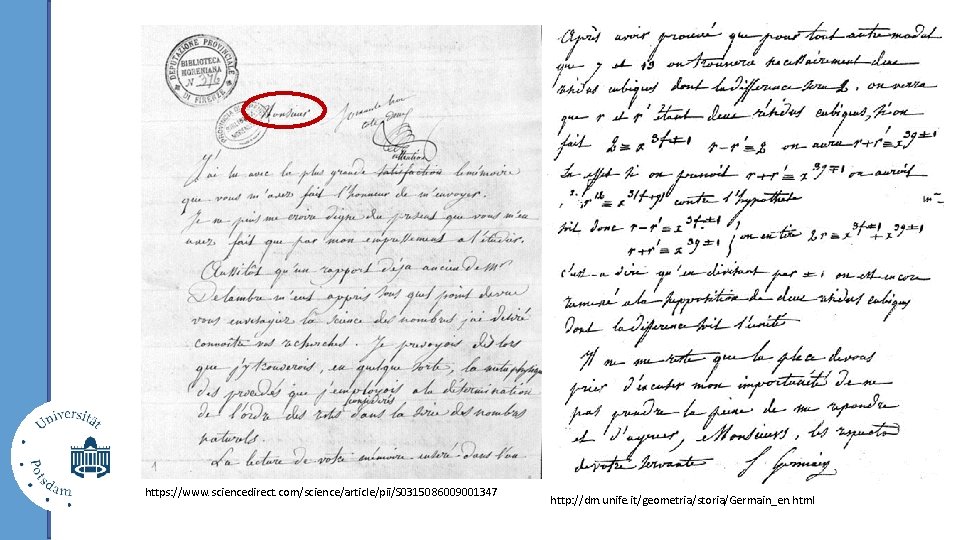 DEPUTAZIONE PROVINCIALE
DI FIRENZE
BIBLIOTECA
MORENIANA
N 276
Monsieur
attention
J'ai lu avec la plus grande satisfaction le mémoire
que vous m'avez fait l'honneur de m'envoyer.
Je ne puis me croire digne du present que vous m'en
avez fait que par mon empressement a l'étudier.
Aussitôt qu'un rapport déja ancien de Mr
Delambre m'eut appris sous quel point de vue
vous envisagiez la science des nombres j'ai désiré
connoitre vos recherches. Je prevoyois dès lors
que j'y trouverois, en quelque sorte, la metaphysique
des procedés que j'employois a la détermination
considérés
de l'ordre des dans la serie des nombres
naturels.
La lecture de votre mémoire inseré dans l'un
1
Après avoir prouvé que pour tout autre module
que 7 et 13 on trouvera necessairement deux
résidus cubiques dont la difference sera 2, on verra
que r et r' étant deux résidus cubiques, si on
fait 2≡x^{3f±1} r-r'≡2 on aura r+r'≡x^{3g±1}
En effet si on pouvoit r+r'≡x^{3g∓1} on auroit
contre l'hypothese
soit donc r-r'≡x^{3f±1}
r+r'≡x^{3g±1} } on en tire 2r≡x^{3f±1}+x^{3g±1}
c'est a dire qu'en divisant par on est encore
ramené a la supposition de deux résidus cubiques
dont la difference soit l'unité
Il ne me reste que la place de vous
prier d'excuser mon importunité de ne
pas prendre la peine de me repondre
et d'agréer, Monsieur, les
de votre servante S Germain
Universität
Potsdam
https://www.sciencedirect.com/science/article/pii/S0315086009001347
http://dm.unife.it/geometria/storia/Germain_en.html